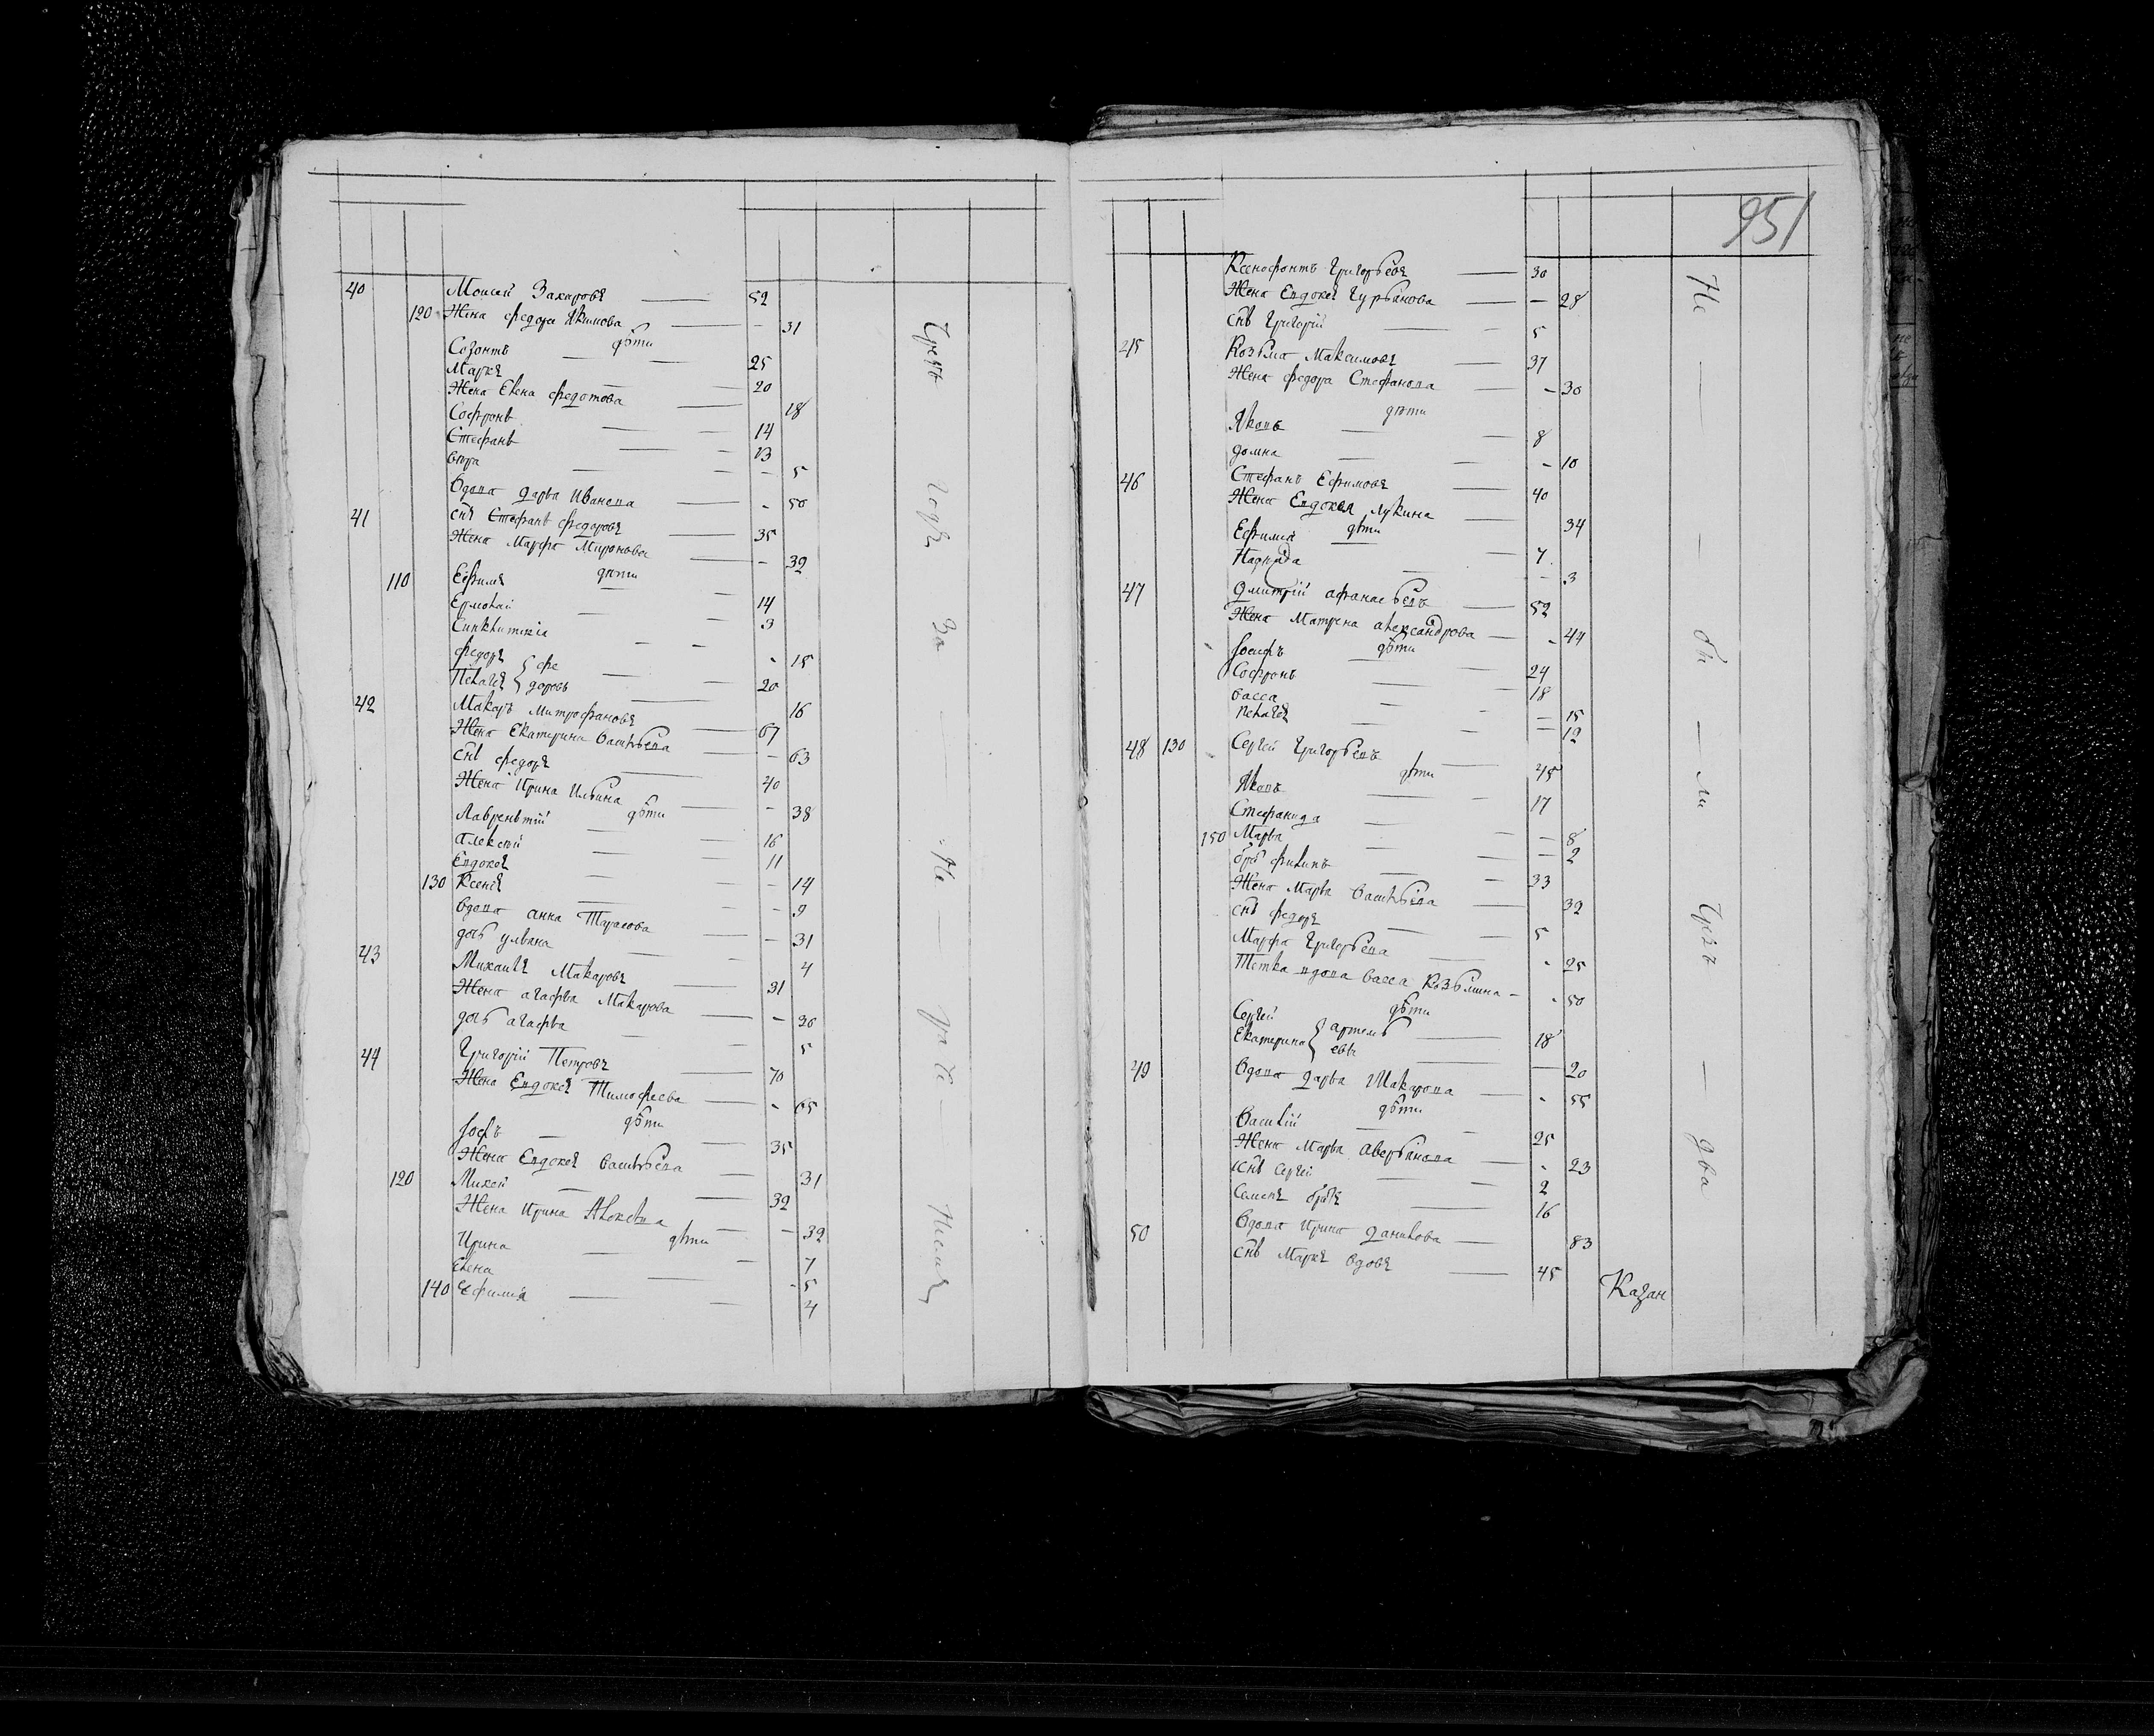 40 Моисей Захаровъ — 52
120 Жена Федора Якимова — 31
дѣти
Созонтъ — 25
Маркъ — 20
Жена Елена Федотова — 18
Софронъ — 14
Стефанъ — 13
Вѣра — 5
Вдова Дарья Иванова — 50
41 снъ Стефанъ Федоровъ — 35
Жена Марфа Миронова — 32
дѣти
110 Ефимъ — 14
Ермолай — 3
Синклитикіа — 18
Федоръ — 20
Пелагея — 16
{ Фе
доровы
42 Макаръ Митрофановъ — 67
Жена Екатерина Васильева — 63
снъ Федоръ — 40
Жена Ирина Ильина — 38
дѣти
Лаврентий — 16
Алексѣй — 11
Евдокея — 14
130 Ксения — 9
Вдова Анна Тарасова — 31
дочь Ульяна — 4
43 Михаилъ Макаровъ — 31
Жена Агафья Макарова — 30
дочь Агафья — 5
44 Григорій Петровъ — 70
Жена Евдокея Тимофеева — 65
дѣти
— 35
Жена Евдокея Васильева — 31
120 Михей — 32
Жена Ирина — 32
дѣти
Ирина — 7
Елена — 5
140 Ефимія — 4
За
Не
951
Ксенофонтъ Григорьевъ — 30
Жена Евдокея Гурьянова — 28
снъ Григорій — 5
45 Козьма Максимовъ — 37
Жена Федора Стефанова — 30
дѣти
Яковъ — 8
Домна — 10
46 Стефанъ Ефимовъ — 40
Жена Евдокея Лукина — 34
дѣти
Ефимія — 7
3
47 Дмитрій Афанасьевъ — 52
Жена Матрена Александрова — 44
дѣти
Іосифъ — 24
Софронъ — 18
Васса — 15
Пелагея — 12
48 130 Сергей Григорьевъ — 45
дѣти
Яковъ — 17
Стефанида — 8
150 Марья — 2
братъ Филипъ — 33
Жена Марья Васильева — 32
снъ Федоръ — 5
Марфа Григорьева — 25
Тетка вдова Васса Козьмина — 50
дѣти
Сергей — 18
Екатерина — 20
{ Артемь
евы
49 Вдова Дарья Макарова — 55
дѣти
Василій — 25
Жена Марья Аверьянова — 23
снъ Сергей — 2
Семенъ братъ — 16
50 Вдова Ирина Данилова — 83
снъ Маркъ вдовъ — 45
Казан
Не — бы — ли Чрезъ — два